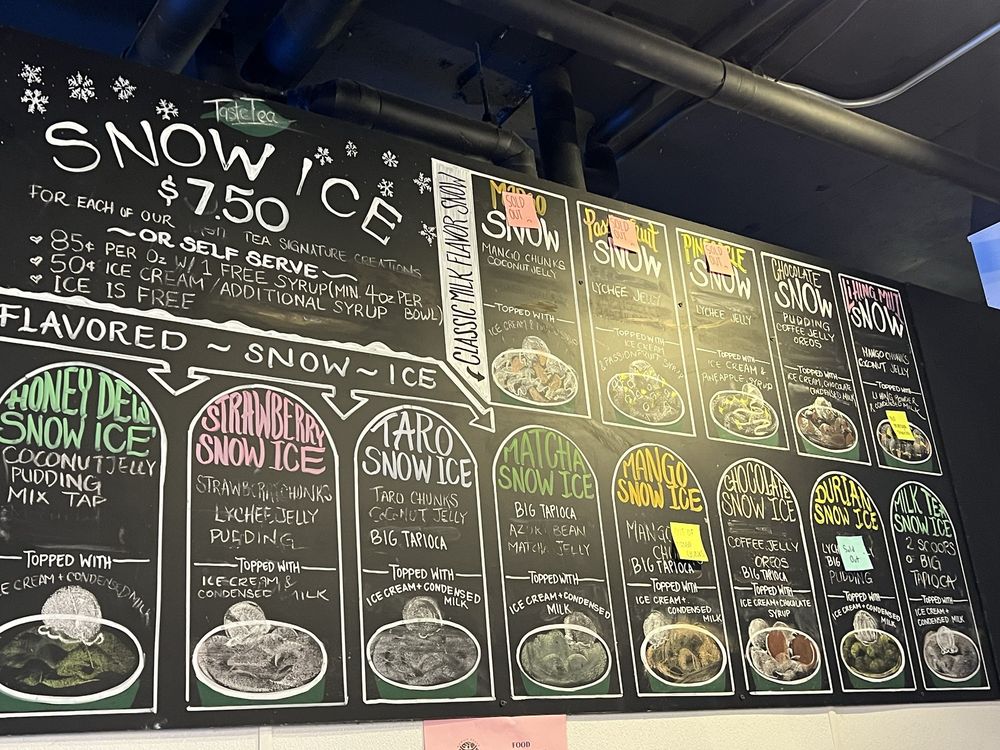 TasteTea
SNOW ICE
$7.50
FOR EACH OF OUR TEA SIGNATURE CREATIONS
~OR SELF SERVE~
85¢ PER OZ W/ 1 FREE SYRUP (MIN. 4OZ PER BOWL)
50¢ ICE CREAM / ADDITIONAL SYRUP
ICE IS FREE
CLASSIC MILK FLAVOR SNOW
SOLD OUT
SNOW
MANGO CHUNKS
COCONUT JELLY
TOPPED WITH
ICE CREAM &
Passion Fruit
SOLD OUT
SNOW
LYCHEE JELLY
TOPPED WITH
ICE CREAM
PASSIONFRUIT SYRUP
PINEAPPLE
SOLD OUT
SNOW
LYCHEE JELLY
TOPPED WITH
ICE CREAM &
PINEAPPLE SYRUP
CHOCOLATE
SNOW
PUDDING
COFFEE JELLY
OREOS
TOPPED WITH
ICE CREAM, CHOCOLATE
CONDENSED MILK
SNOW
MANGO CHUNKS
COCONUT JELLY
TOPPED WITH
LI HING POWDER
& CONDENSED MILK
FLAVORED ~ SNOW ~ ICE
HONEY DEW
SNOW ICE
COCONUT JELLY
PUDDING
MIX TAP
TOPPED WITH
ICE CREAM + CONDENSED MILK
STRAWBERRY
SNOW ICE
STRAWBERRY CHUNKS
LYCHEE JELLY
PUDDING
TOPPED WITH
ICE CREAM &
CONDENSED MILK
TARO
SNOW ICE
TARO CHUNKS
COCONUT JELLY
BIG TAPIOCA
TOPPED WITH
ICE CREAM + CONDENSED
MILK
MATCHA
SNOW ICE
BIG TAPIOCA
AZUKI BEAN
MATCHA JELLY
TOPPED WITH
ICE CREAM + CONDENSED
MILK
MANGO
SNOW ICE
MANGO
BIG TAPIOCA
TOPPED WITH
ICE CREAM +
CONDENSED
MILK
CHOCOLATE
SNOW ICE
COFFEE JELLY
OREOS
BIG TAPIOCA
TOPPED WITH
ICE CREAM + CHOCOLATE
SYRUP
DURIAN
SNOW ICE
Sold
Out
BIG
PUDDING
TOPPED WITH
ICE CREAM + CONDENSED
MILK
MILK TEA
SNOW ICE
2 SCOOPS
OF BIG
TAPIOCA
TOPPED WITH
ICE CREAM +
CONDENSED MILK
FOOD